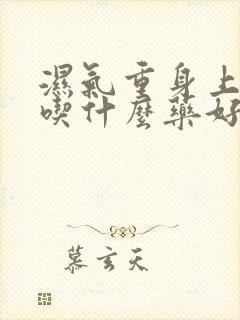 濕氣重身上
喫什麼藥好
慕玄天